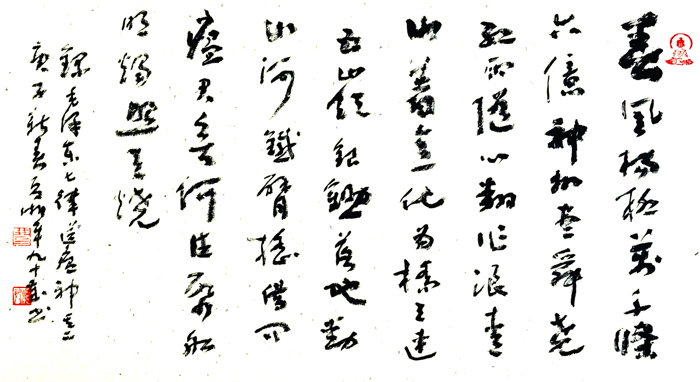 春風楊柳萬千條
六億神州盡舜堯
紅雨隨心翻作浪青
山著意化為橋天連
五嶺銀鋤落地動
三河鐵臂搖借問
瘟君欲何往紙船
明燭照天燒
錄毛澤東七律送瘟神其二
庚子新春年九十歲書